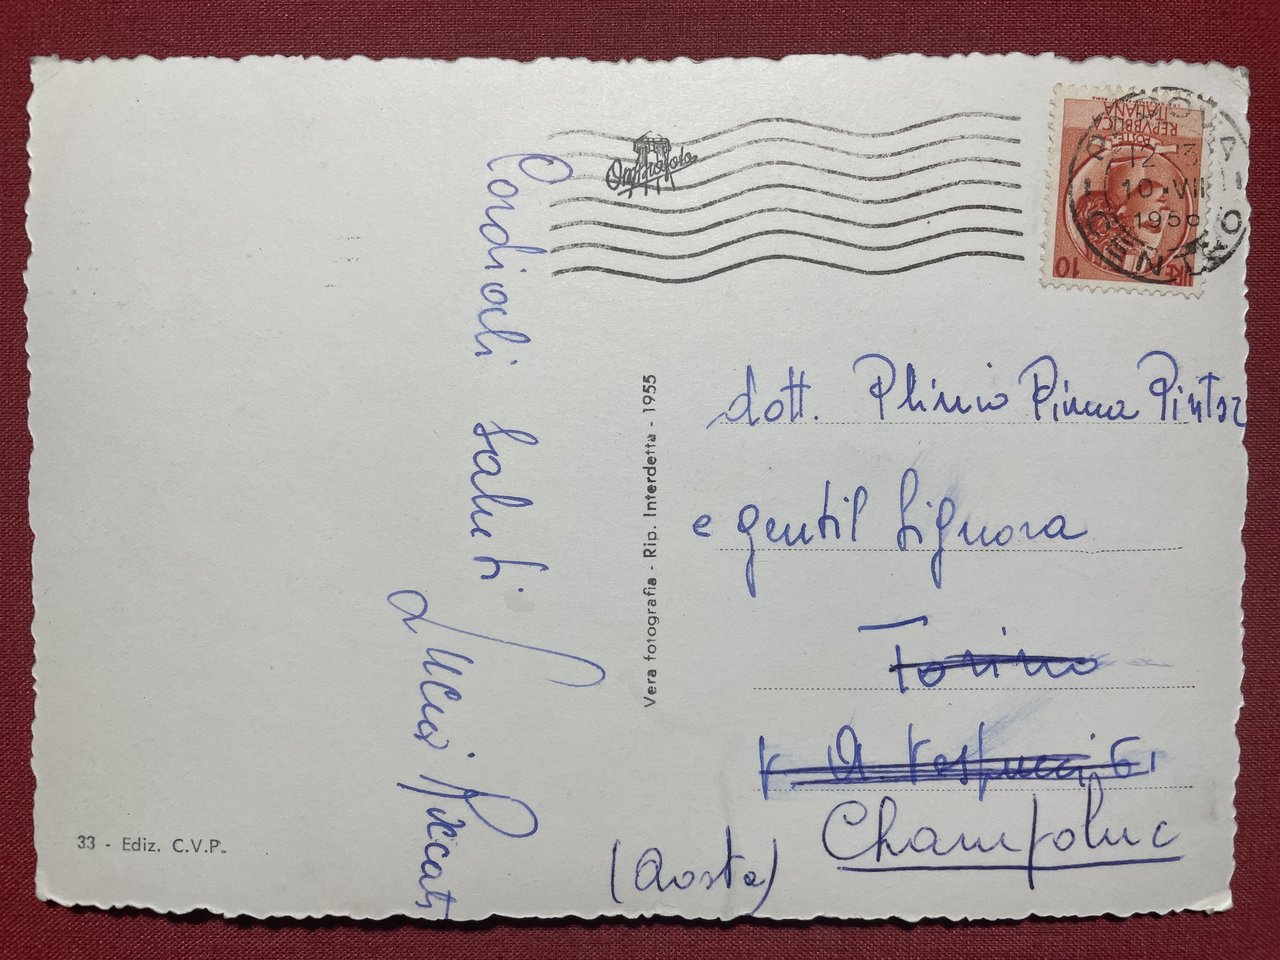 Cordiali saluti
Lucia Riccati
33 - Ediz. C.V.P.
Vera fotografia - Rip. Interdetta - 1955
REPVBBLICA
ITALIANA
POSTE
LIRE 10
PADOVA
12 - 13
10 • VIII
1958
CENTRO
dott. Plinio Pinna Pintor
e gentil Signora
Torino
V. A. Vespucci 61
Champoluc
(Aosta)